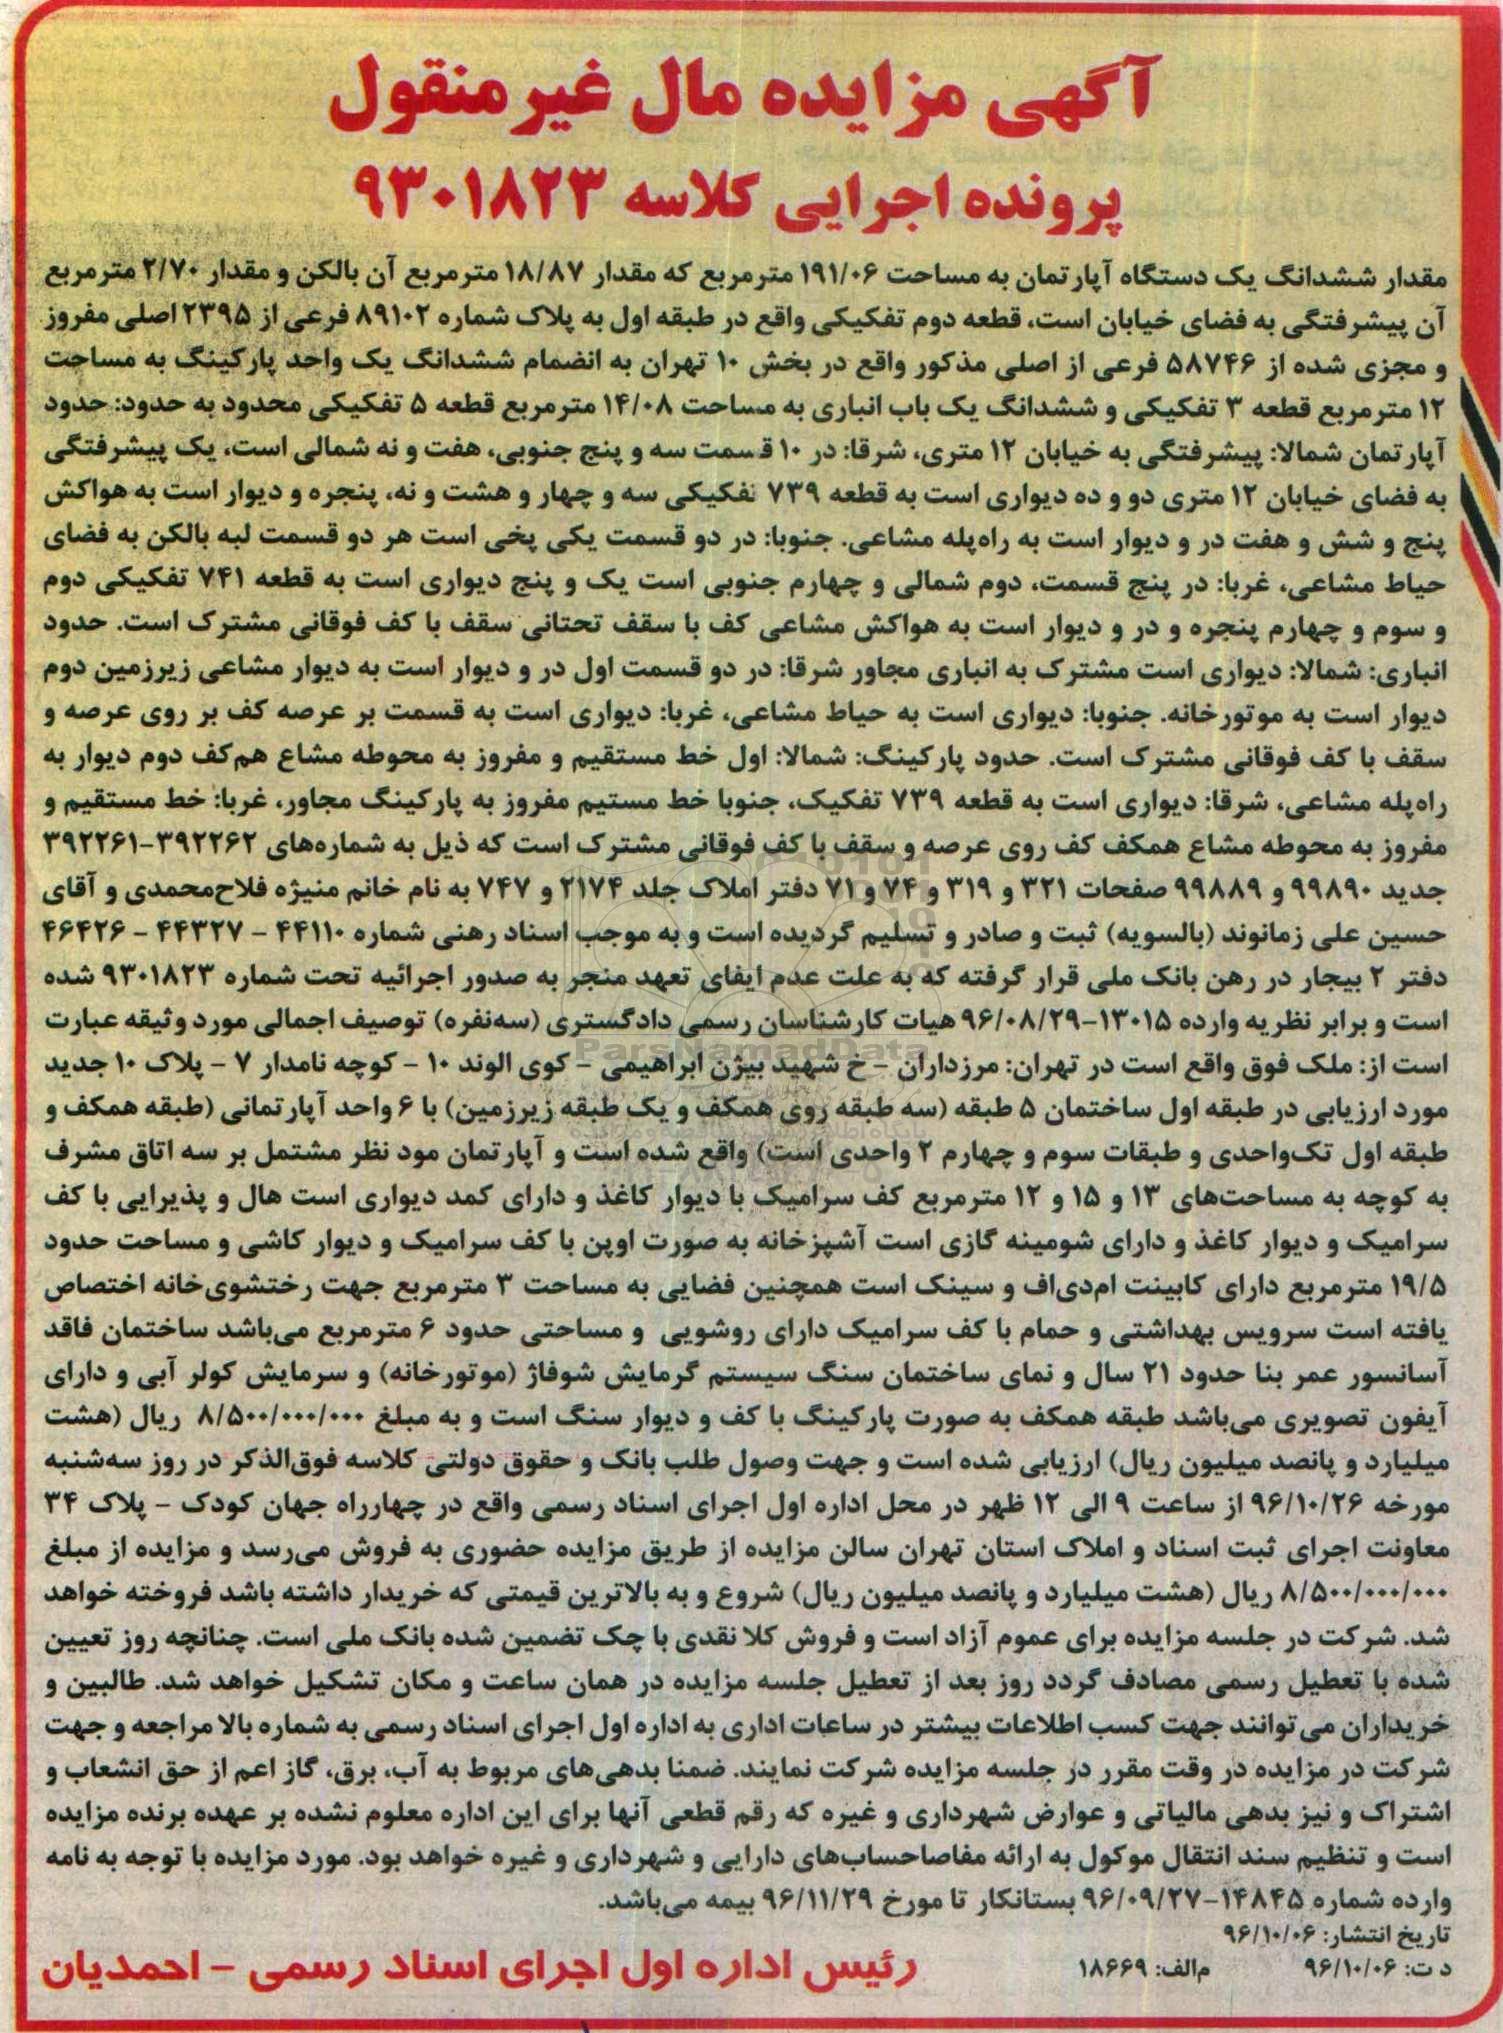 آگهی مزایده مال غیرمنقول
پرونده اجرایی کلاسه ۹۳۰۱۸۲۳
مقدار ششدانگ یک دستگاه آپارتمان به مساحت ۱۹۱/۰۶ مترمربع که مقدار ۱۸/۸۷ مترمربع آن بالکن و مقدار ۲/۷۰ مترمربع
آن پیشرفتگی به فضای خیابان است، قطعه دوم تفکیکی واقع در طبقه اول به پلاک شماره ۸۹۱۰۲ فرعی از ۲۳۹۵ اصلی مفروز
و مجزی شده از ۵۸۷۴۶ فرعی از اصلی مذکور واقع در بخش ۱۰ تهران به انضمام ششدانگ یک واحد پارکینگ به مساحت
۱۲ مترمربع قطعه ۳ تفکیکی و ششدانگ یک باب انباری به مساحت ۱۴/۰۸ مترمربع قطعه ۵ تفکیکی محدود به حدود: حدود
آپارتمان شمالا: پیشرفتگی به خیابان ۱۲ متری، شرقا: در ۱۰ قسمت سه و پنج جنوبی، هفت و نه شمالی است، یک پیشرفتگی
به فضای خیابان ۱۲ متری دو و ده دیواری است به قطعه ۷۳۹ تفکیکی سه و چهار و هشت و نه، پنجره و دیوار است به هواکش
پنج و شش و هفت در و دیوار است به راه‌پله مشاعی. جنوبا: در دو قسمت یکی پخی است هر دو قسمت لبه بالکن به فضای
حیاط مشاعی، غربا: در پنج قسمت، دوم شمالی و چهارم جنوبی است یک و پنج دیواری است به قطعه ۷۴۱ تفکیکی دوم
و سوم و چهارم پنجره و در و دیوار است به هواکش مشاعی کف با سقف تحتانی سقف با کف فوقانی مشترک است. حدود
انباری: شمالا: دیواری است مشترک به انباری مجاور شرقا: در دو قسمت اول در و دیوار است به دیوار مشاعی زیرزمین دوم
دیوار است به موتورخانه. جنوبا: دیواری است به حیاط مشاعی، غربا: دیواری است به قسمت بر عرصه کف بر روی عرصه و
سقف با کف فوقانی مشترک است. حدود پارکینگ: شمالا: اول خط مستقیم و مفروز به محوطه مشاع هم‌کف دوم دیوار به
راه‌پله مشاعی، شرقا: دیواری است به قطعه ۷۳۹ تفکیک، جنوبا خط مستیم مفروز به پارکینگ مجاور، غربا: خط مستقیم و
مفروز به محوطه مشاع همکف کف روی عرصه و سقف با کف فوقانی مشترک است که ذیل به شماره‌های ۳۹۲۲۶۲-۳۹۲۲۶۱
جدید ۹۹۸۹۰ و ۹۹۸۸۹ صفحات ۳۲۱ و ۳۱۹ و ۷۴ و ۷۱ دفتر املاک جلد ۲۱۷۴ و ۷۴۷ به نام خانم منیژه فلاح‌محمدی و آقای
حسین علی زمانوند (بالسویه) ثبت و صادر و تسلیم گردیده است و به موجب اسناد رهنی شماره ۴۴۱۱۰ - ۴۴۳۲۷ - ۴۶۴۲۶
دفتر ۲ بیجار در رهن بانک ملی قرار گرفته که به علت عدم ایفای تعهد منجر به صدور اجرائیه تحت شماره ۹۳۰۱۸۲۳ شده
است و برابر نظریه وارده ۱۳۰۱۵-۹۶/۰۸/۲۹ هیات کارشناسان رسمی دادگستری (سه‌نفره) توصیف اجمالی مورد وثیقه عبارت
است از: ملک فوق واقع است در تهران: مرزداران - خ شهید بیژن ابراهیمی - کوی الوند ۱۰ - کوچه نامدار ۷ - پلاک ۱۰ جدید
مورد ارزیابی در طبقه اول ساختمان ۵ طبقه (سه طبقه روی همکف و یک طبقه زیرزمین) با ۶ واحد آپارتمانی (طبقه همکف و
طبقه اول تک‌واحدی و طبقات سوم و چهارم ۲ واحدی است) واقع شده است و آپارتمان مود نظر مشتمل بر سه اتاق مشرف
به کوچه به مساحت‌های ۱۳ و ۱۵ و ۱۲ مترمربع کف سرامیک با دیوار کاغذ و دارای کمد دیواری است هال و پذیرایی با کف
سرامیک و دیوار کاغذ و دارای شومینه گازی است آشپزخانه به صورت اوپن با کف سرامیک و دیوار کاشی و مساحت حدود
۱۹/۵ مترمربع دارای کابینت ام‌دی‌اف و سینک است همچنین فضایی به مساحت ۳ مترمربع جهت رختشوی‌خانه اختصاص
یافته است سرویس بهداشتی و حمام با کف سرامیک دارای روشویی و مساحتی حدود ۶ مترمربع می‌باشد ساختمان فاقد
آسانسور عمر بنا حدود ۲۱ سال و نمای ساختمان سنگ سیستم گرمایش شوفاژ (موتورخانه) و سرمایش کولر آبی و دارای
آیفون تصویری می‌باشد طبقه همکف به صورت پارکینگ با کف و دیوار سنگ است و به مبلغ ۸/۵۰۰/۰۰۰/۰۰۰ ریال (هشت
میلیارد و پانصد میلیون ریال) ارزیابی شده است و جهت وصول طلب بانک و حقوق دولتی کلاسه فوق‌الذکر در روز سه‌شنبه
مورخه ۹۶/۱۰/۲۶ از ساعت ۹ الی ۱۲ ظهر در محل اداره اول اجرای اسناد رسمی واقع در چهارراه جهان کودک - پلاک ۳۴
معاونت اجرای ثبت اسناد و املاک استان تهران سالن مزایده از طریق مزایده حضوری به فروش می‌رسد و مزایده از مبلغ
۸/۵۰۰/۰۰۰/۰۰۰ ریال (هشت میلیارد و پانصد میلیون ریال) شروع و به بالاترین قیمتی که خریدار داشته باشد فروخته خواهد
شد. شرکت در جلسه مزایده برای عموم آزاد است و فروش کلا نقدی با چک تضمین شده بانک ملی است. چنانچه روز تعیین
شده با تعطیل رسمی مصادف گردد روز بعد از تعطیل جلسه مزایده در همان ساعت و مکان تشکیل خواهد شد. طالبین و
خریداران می‌توانند جهت کسب اطلاعات بیشتر در ساعات اداری به اداره اول اجرای اسناد رسمی به شماره بالا مراجعه و جهت
شرکت در مزایده در وقت مقرر در جلسه مزایده شرکت نمایند. ضمنا بدهی‌های مربوط به آب، برق، گاز اعم از حق انشعاب و
اشتراک و نیز بدهی مالیاتی و عوارض شهرداری و غیره که رقم قطعی آنها برای این اداره معلوم نشده بر عهده برنده مزایده
است و تنظیم سند انتقال موکول به ارائه مفاصاحساب‌های دارایی و شهرداری و غیره خواهد بود. مورد مزایده با توجه به نامه
وارده شماره ۱۴۸۴۵-۹۶/۰۹/۲۷ بستانکار تا مورخ ۹۶/۱۱/۲۹ بیمه می‌باشد.
تاریخ انتشار: ۹۶/۱۰/۰۶
د ت: ۹۶/۱۰/۰۶ م‌الف: ۱۸۶۶۹
رئیس اداره اول اجرای اسناد رسمی - احمدیان
ParsNamadData